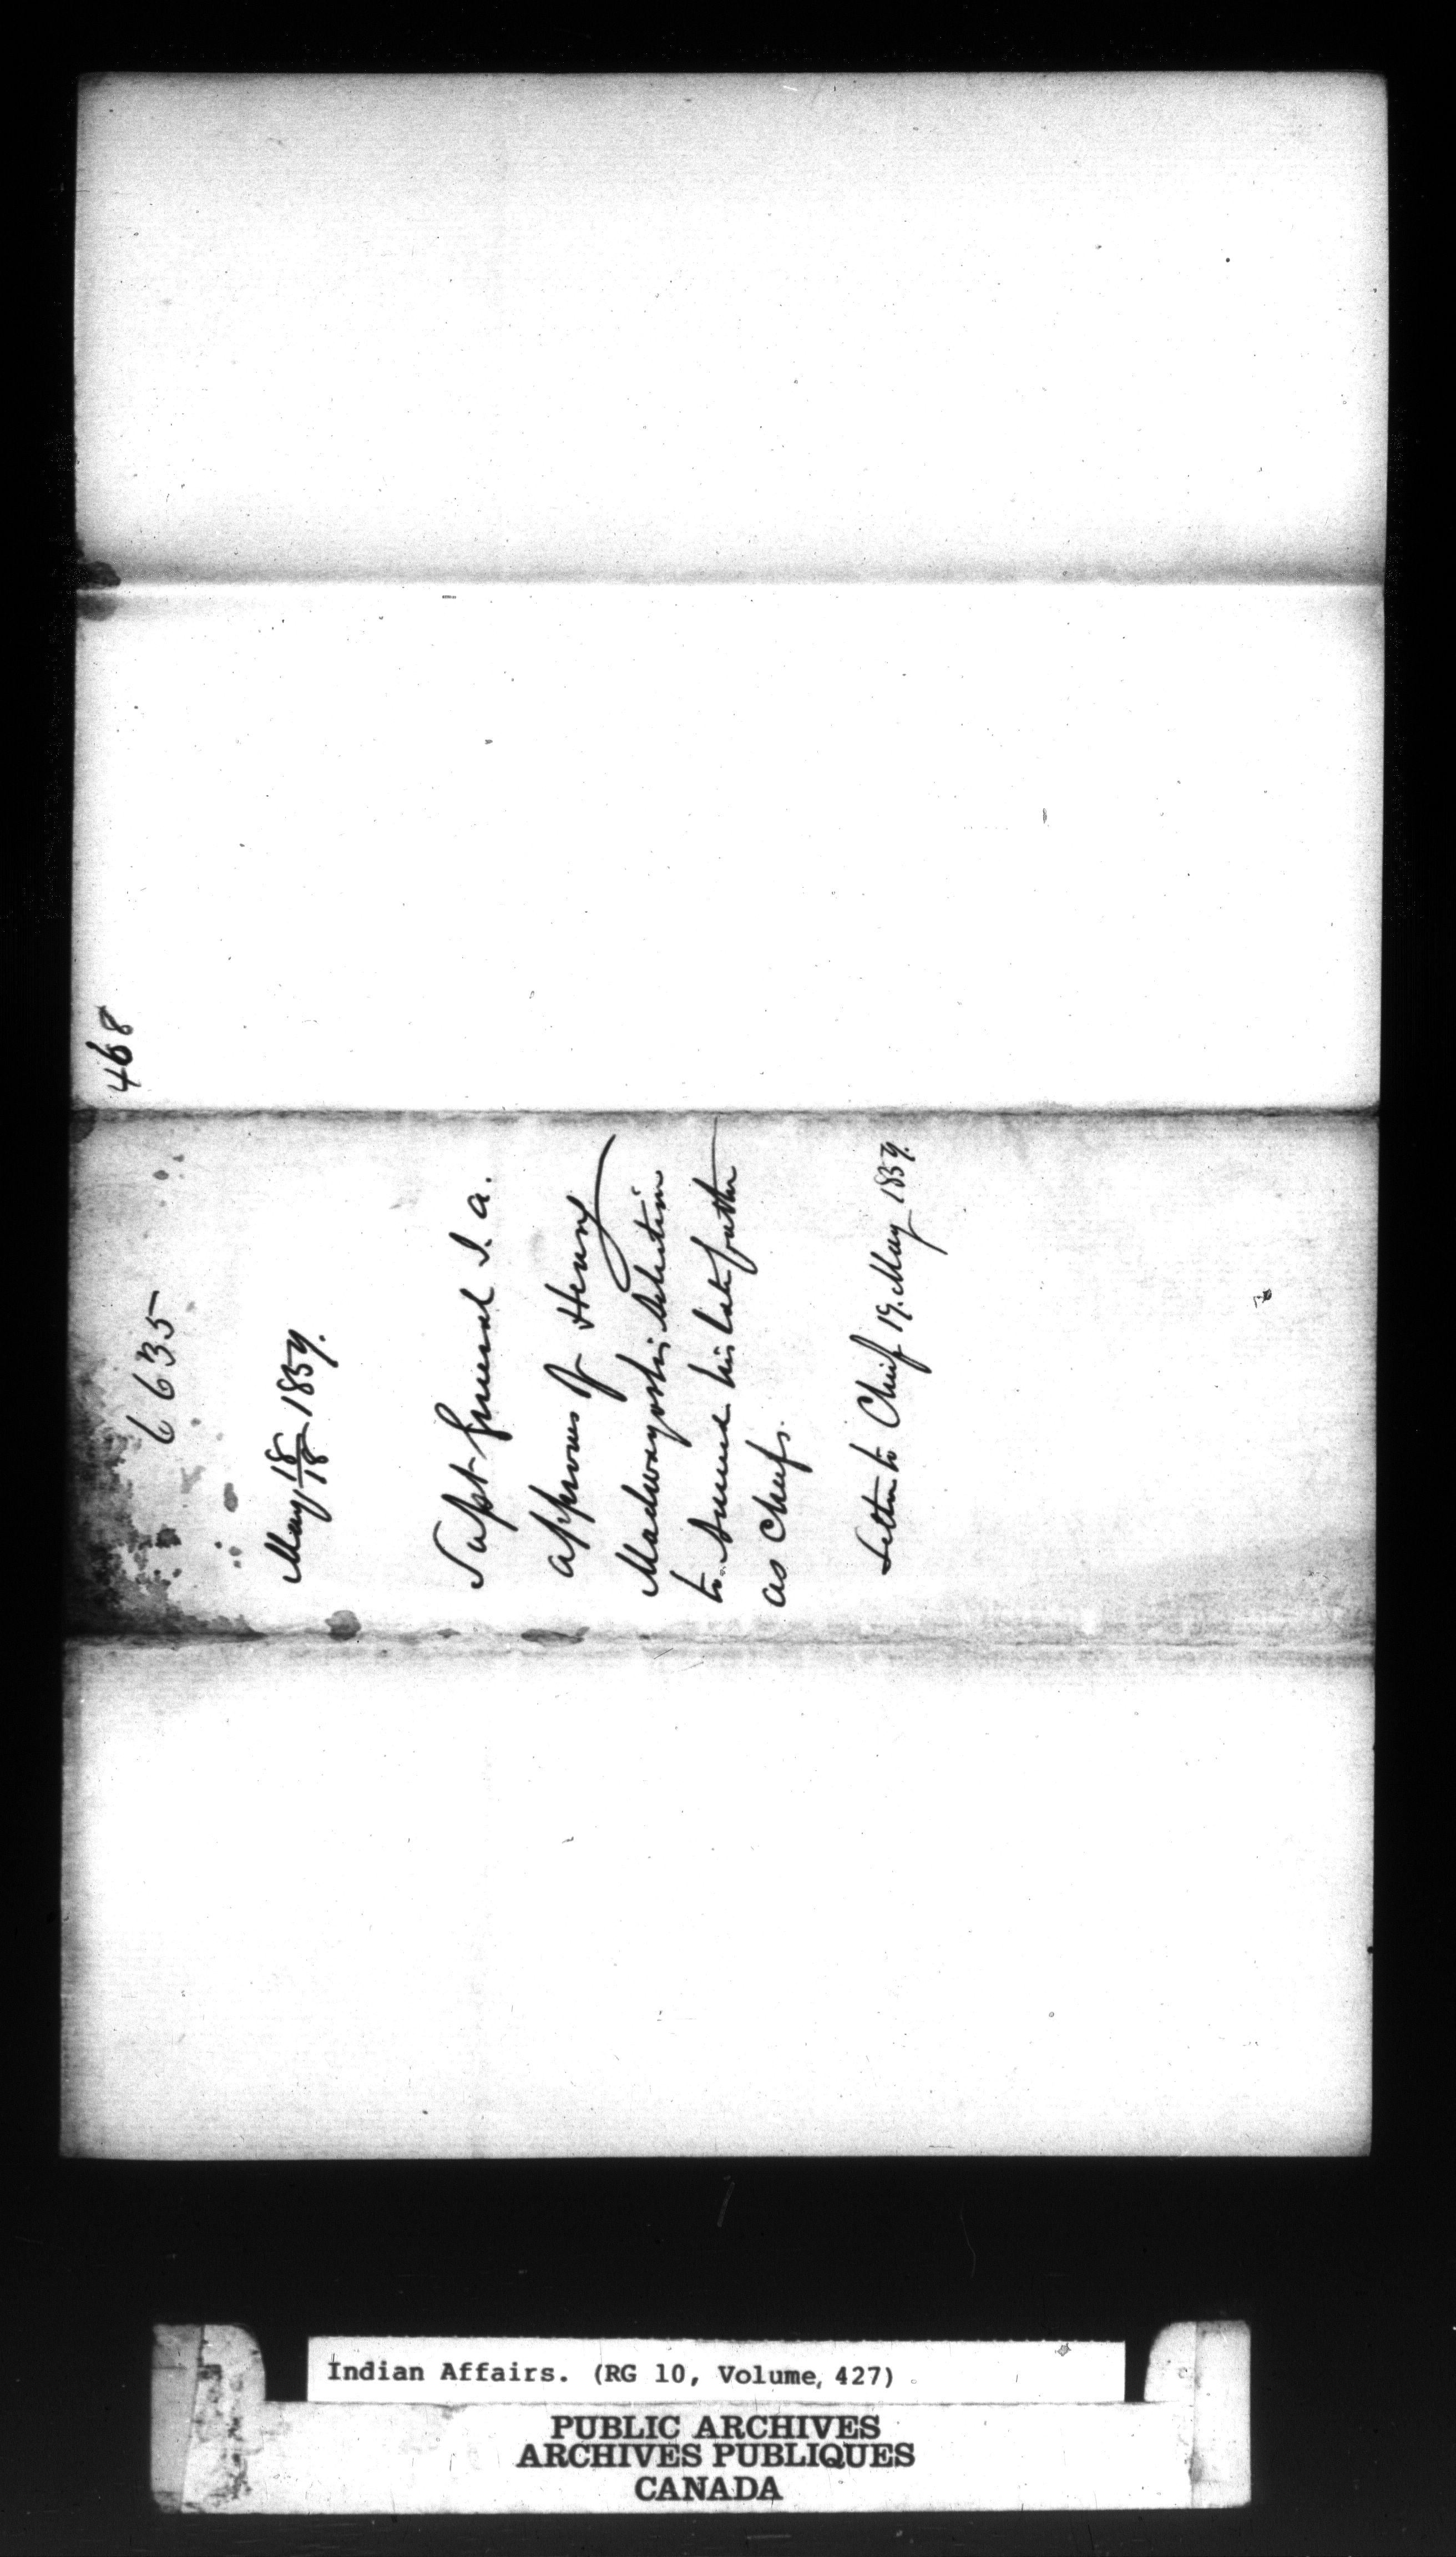 468
6635
May 18/18 1859.
Supt General I. A.
approves of Henry
Madwayosh's selection
to succeed his late father
as Chief.
Letter to Chief 19. May 1859.
Indian Affairs. (RG 10, Volume, 427)
PUBLIC ARCHIVES
ARCHIVES PUBLIQUES
CANADA